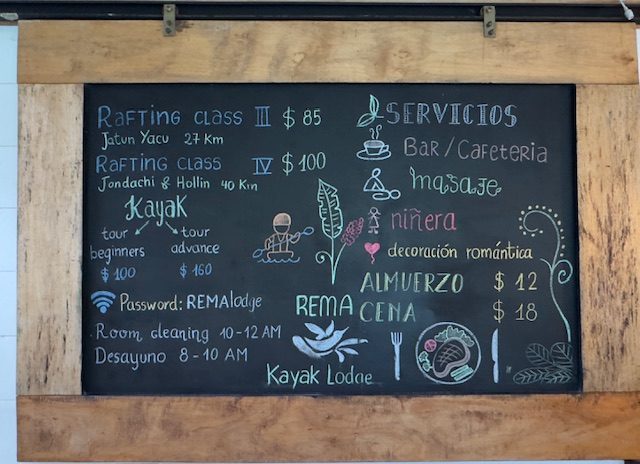 RAFTING CLASS III $ 85
Jatun Yacu 27 Km
RAFTING CLASS IV $ 100
Jondachi & Hollin 40 Km
Kayak
tour beginners
$ 100
tour advance
$ 160
Password: REMAlodge
Room cleaning 10-12 AM
Desayuno 8-10 AM
SERVICIOS
BAR/CAFETERIA
masaje
niñera
decoración romántica
ALMUERZO $ 12
CENA $ 18
REMA
Kayak Lodge